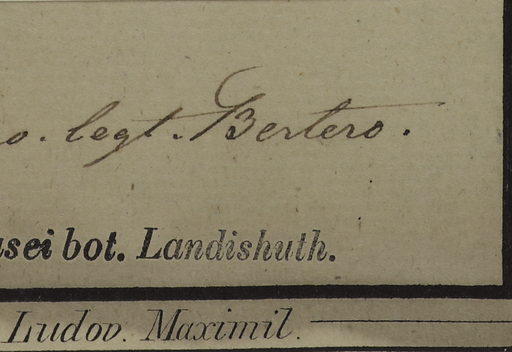 o. legt. Bertero.
sei bot. Landishuth.
Ludov. Maximil.